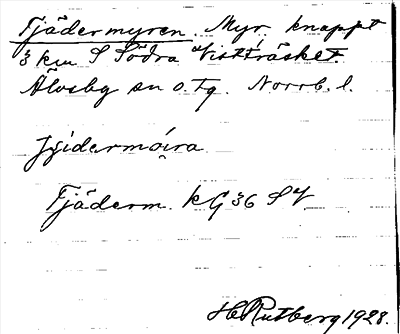 Fjädermyren. Myr. knappt
3 km S Södra Vistträsket.
Älvsby sn o. tg. Norrb. l.
Fjäderm. kG 36 SV
H Rutberg 1928.